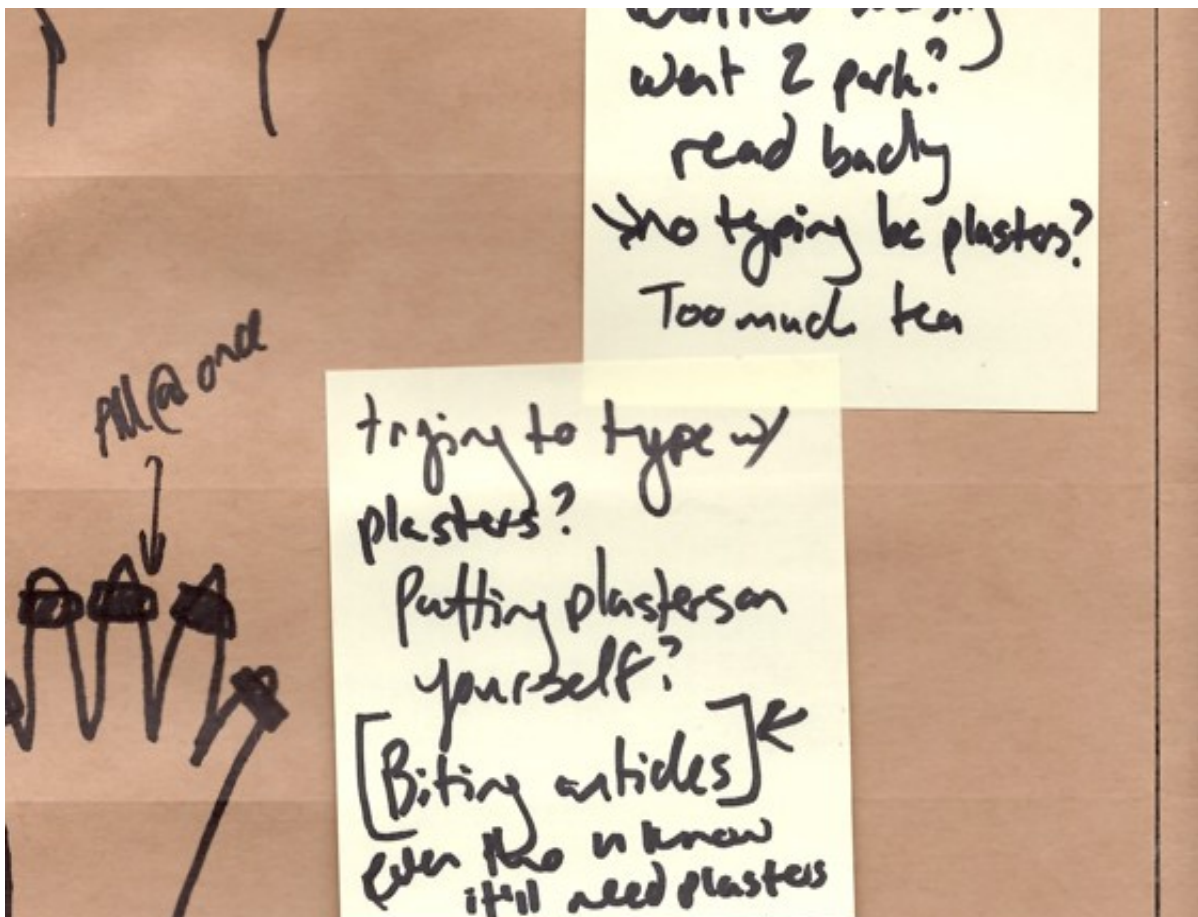 went 2 park?
read badly
no typing bc plasters?
Too much tea
All @ once
trying to type w/
plasters?
Putting plasters on
yourself?
[Biting cuticles]
even tho u know
it'll need plasters